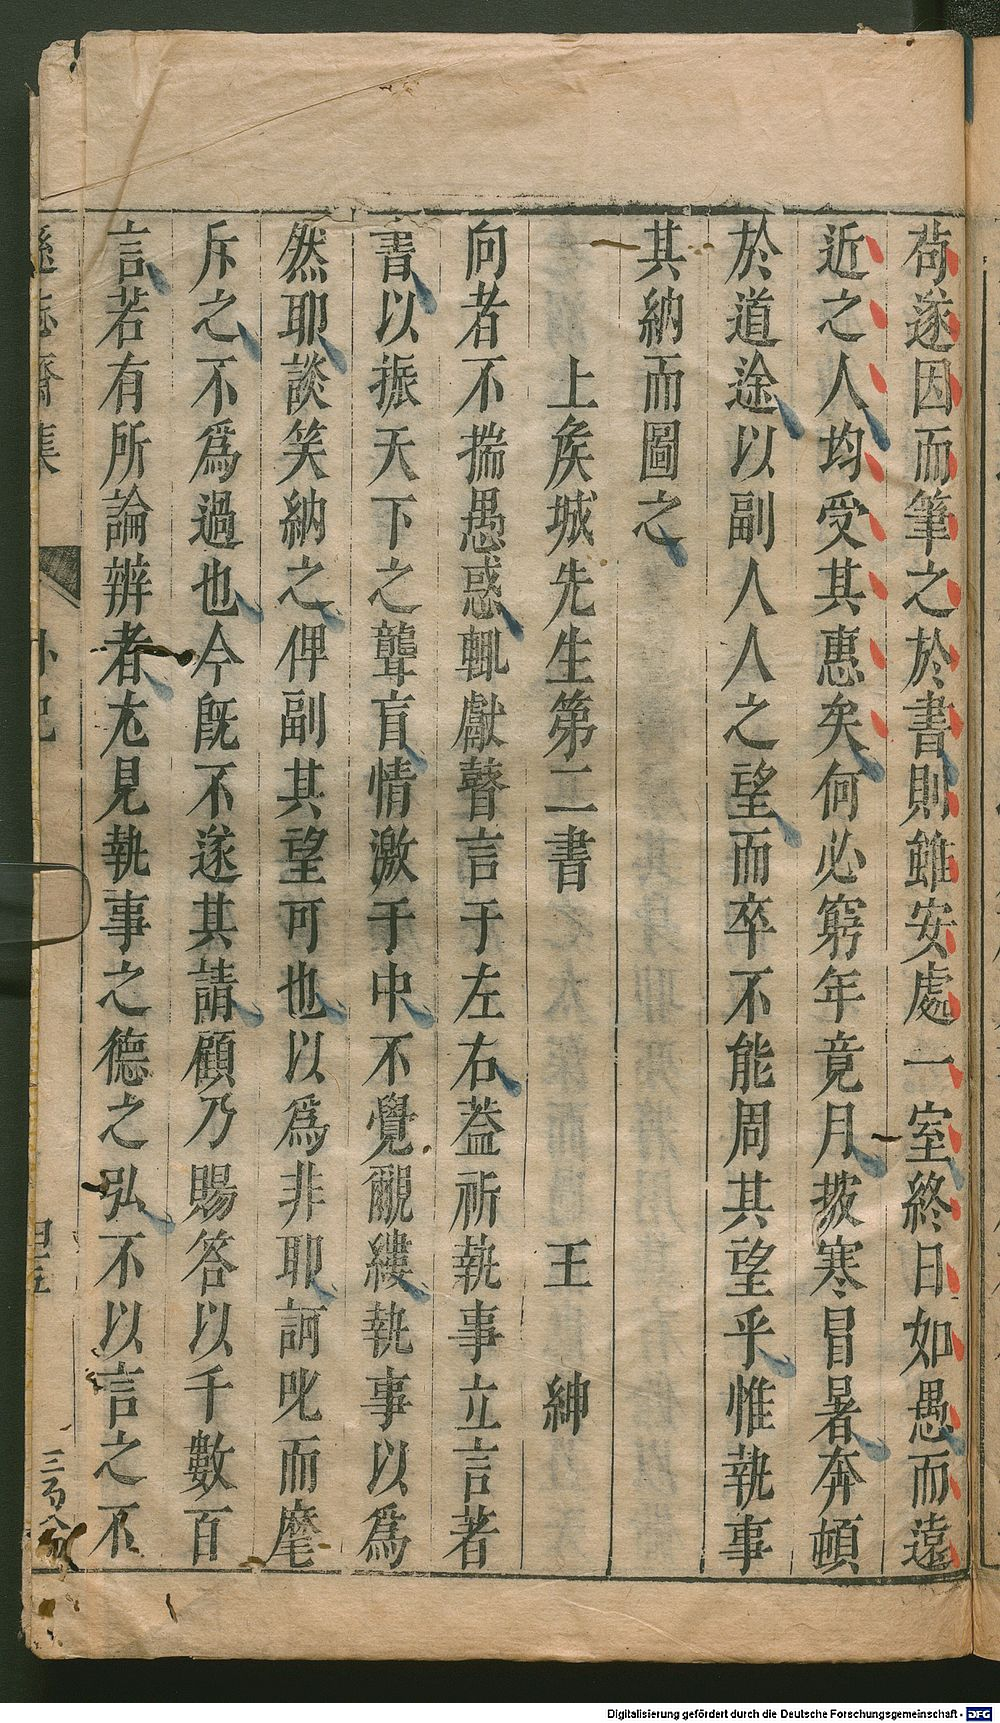 苟遂因而筆之於書則雖安處一室終日如愚而遠
近之人均受其惠矣何必窮年竟月披寒冒暑奔頓
於道途以副人人之望而卒不能周其望乎惟執事
其納而圖之
上矦城先生第二書　王　紳
向者不揣愚惑輒獻瞽言于左右葢祈執事立言著
書以振天下之聾盲情激于中不覺覼縷執事以為
然耶談笑納之俾副其望可也以爲非耶訶叱而麾
斥之不爲過也今旣不遂其請顧乃賜答以千數百
言若有所論辨者尢見執事之德之弘不以言之不
遜志齋集
外紀
四五
三百八
Digitalisierung gefördert durch die Deutsche Forschungsgemeinschaft - DFG